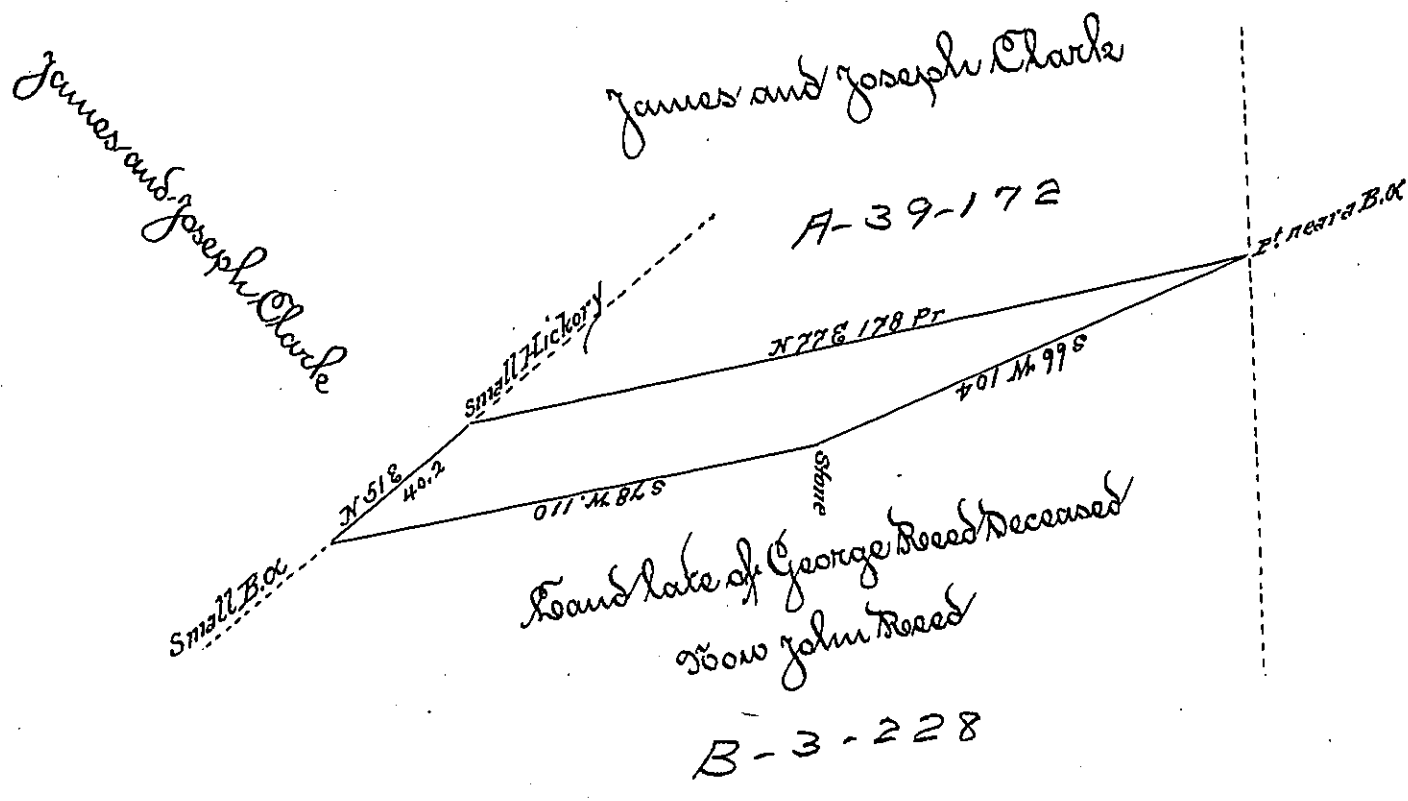 James and Joseph Clark
James and Joseph Clark
A-39-172
Pt near a B.O
Small Hickory
N 77 E 178 Pr
S 66 W 104
N 51 E
40.2
S 78 W. 110
Stone
Small B.O
Land late of George Reed Deceased
Now John Reed
B-3-228